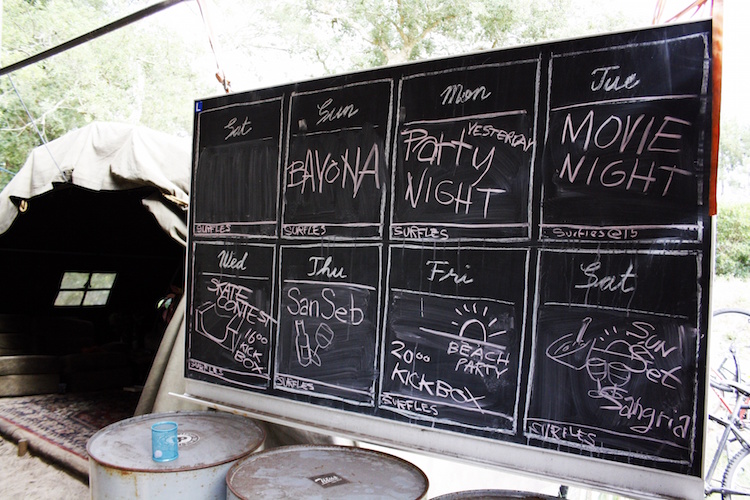 Sat
SURFLES
Sun
BAYONA
SURFLES
Mon
Party YESTERDAY
NIGHT
SURFLES
Tue
MOVIE
NIGHT
Surfles@15
Wed
SKATE
CONTEST
1600
KICK
BOX
SURFLES
Thu
SanSeb
SURFLES
Fri
BEACH
PARTY
2000
KICKBOX
SURFLES
Sat
SUN
Set
Sangria
SURFLES